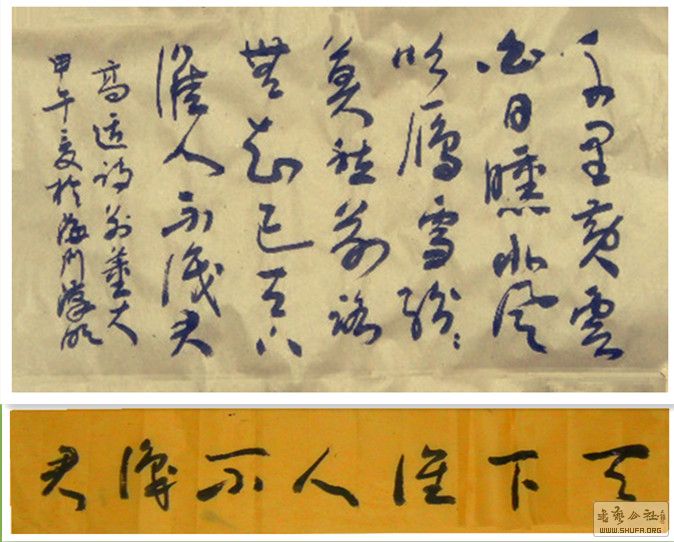 千里黄雲
白日曛北風
吹雁雪紛〻
莫愁前路
無知己天下
誰人不識君
高適詩別董大
甲午夏於海門
天下誰人不識君
書藝公社
WWW.SHUFA.ORG